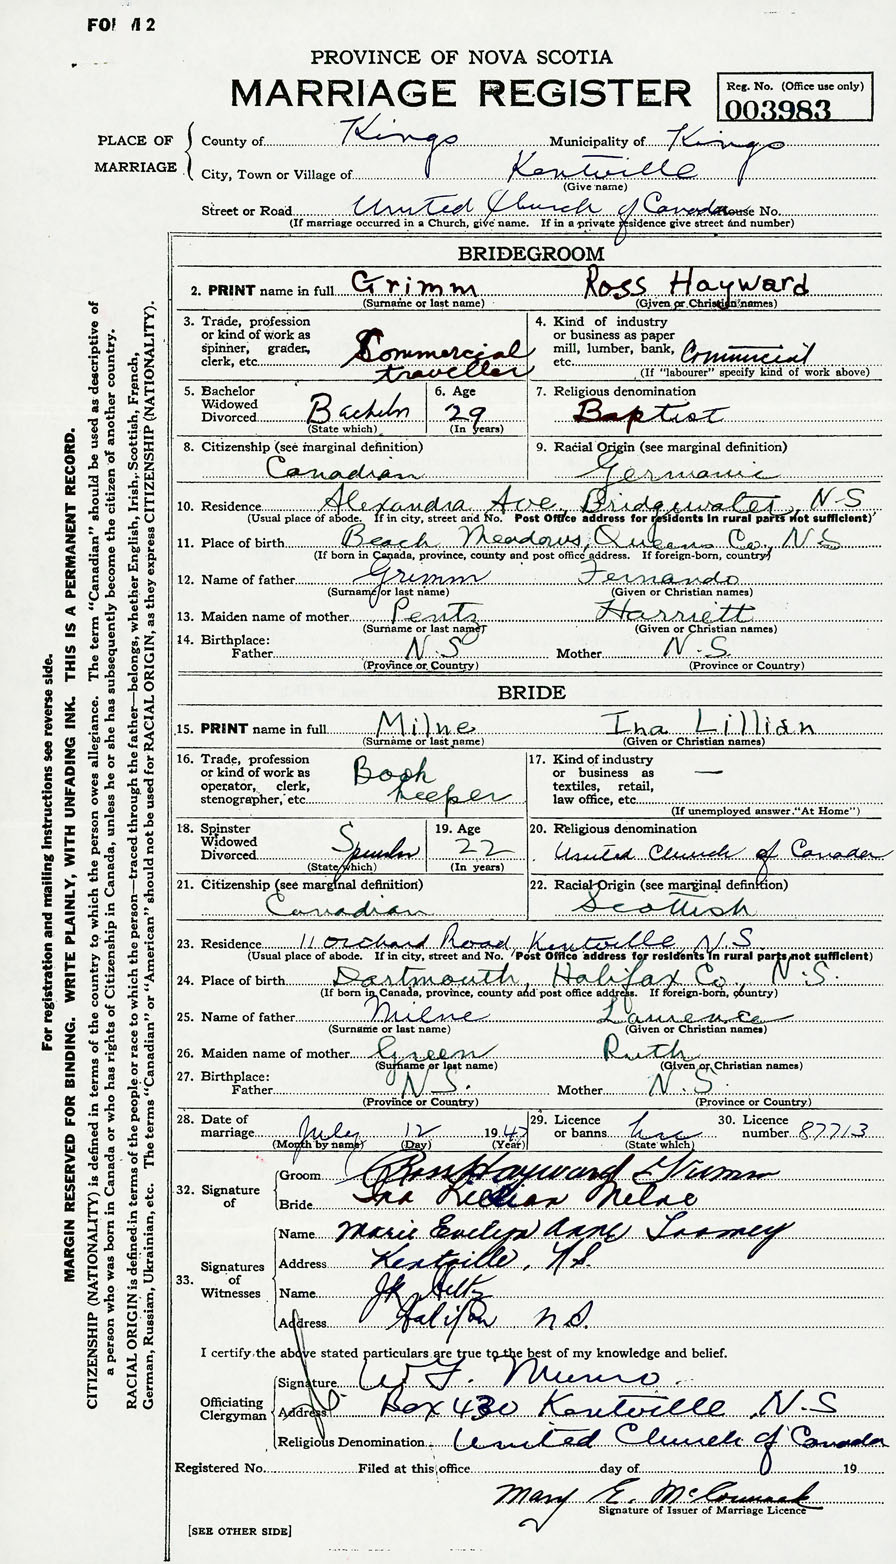 PROVINCE OF NOVA SCOTIA
MARRIAGE REGISTER
Reg. No. (Office use only)
003983
PLACE OF MARRIAGE
County of Kings Municipality of Kings
City, Town or Village of Kentville
(Give name)
Street or Road United Church of Canada House No.
(If marriage occurred in a Church, give name. If in a private residence give street and number)
BRIDEGROOM
2. PRINT name in full Grimm Ross Hayward
(Surname or last name) (Given or Christian names)
3. Trade, profession or kind of work as spinner, grader, clerk, etc. Commercial traveller
4. Kind of industry or business as paper mill, lumber, bank, etc. Commercial
(If "labourer" specify kind of work above)
5. Bachelor Widowed Divorced Bachelor
(State which)
6. Age 29
(In years)
7. Religious denomination
Baptist
8. Citizenship (see marginal definition)
Canadian
9. Racial Origin (see marginal definition)
Germanic
10. Residence Alexandra Ave, Bridgewater, N-S
(Usual place of abode. If in city, street and No. Post Office address for residents in rural parts not sufficient)
11. Place of birth Beach Meadows, Queens Co., N S
(If born in Canada, province, county and post office address. If foreign-born, country)
12. Name of father Grimm Fernando
(Surname or last name) (Given or Christian names)
13. Maiden name of mother Pentz Harriett
(Surname or last name) (Given or Christian names)
14. Birthplace:
Father N.S Mother N.S.
(Province or Country) (Province or Country)
BRIDE
15. PRINT name in full Milne Ina Lillian
(Surname or last name) (Given or Christian names)
16. Trade, profession or kind of work as operator, clerk, stenographer, etc. Book keeper
17. Kind of industry or business as textiles, retail, law office, etc. —
(If unemployed answer "At Home")
18. Spinster Widowed Divorced Spinster
(State which)
19. Age 22
(In years)
20. Religious denomination
United Church of Canada
21. Citizenship (see marginal definition)
Canadian
22. Racial Origin (see marginal definition)
Scottish
23. Residence 11 Orchard Road Kentville N.S.
(Usual place of abode. If in city, street and No. Post Office address for residents in rural parts not sufficient)
24. Place of birth Dartmouth, Halifax Co., N.S.
(If born in Canada, province, county and post office address. If foreign-born, country)
25. Name of father Milne Laurence
(Surname or last name) (Given or Christian names)
26. Maiden name of mother Green Ruth
(Surname or last name) (Given or Christian names)
27. Birthplace:
Father N.S. Mother N.S.
(Province or Country) (Province or Country)
28. Date of marriage July 12 1947
(Month by name) (Day) (Year)
29. Licence or banns Lic
(State which)
30. Licence number 87713
32. Signature of
Groom Ross Hayward Grimm
Bride Ina Lillian Milne
33. Signatures of Witnesses
Name Marie Evelyn Anne Toomey
Address Kentville, N.S.
Name
Address Halifax N.S.
I certify the above stated particulars are true to the best of my knowledge and belief.
Officiating Clergyman
Signature W F. Munro
Address Box 430 Kentville N.S
Religious Denomination United Church of Canada
Registered No. Filed at this office day of 19
Mary E. McCormack
Signature of Issuer of Marriage Licence
[SEE OTHER SIDE]
For registration and mailing instructions see reverse side.
MARGIN RESERVED FOR BINDING. WRITE PLAINLY, WITH UNFADING INK. THIS IS A PERMANENT RECORD.
CITIZENSHIP (NATIONALITY) is defined in terms of the country to which the person owes allegiance. The term "Canadian" should be used as descriptive of
a person who was born in Canada or who has rights of Citizenship in Canada, unless he or she has subsequently become the citizen of another country.
RACIAL ORIGIN is defined in terms of the people or race to which the person—traced through the father—belongs, whether English, Irish, Scottish, French,
German, Russian, Ukrainian, etc. The terms "Canadian" or "American" should not be used for RACIAL ORIGIN, as they express CITIZENSHIP (NATIONALITY).